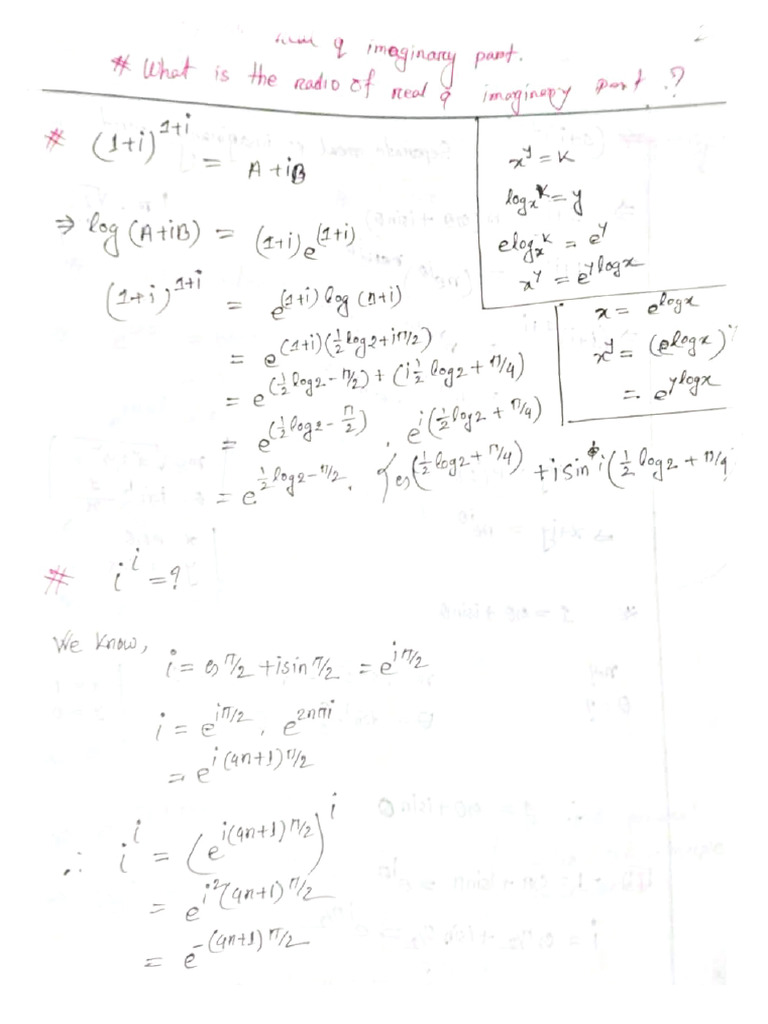 & imaginary part.
# What is the radio of real & imaginary part ?
# (1+i)^{1+i} = A+iB
⇒ log (A+iB) = (1+i)e^{(1+i)}
(1+i)^{1+i} = e^{(1+i) log (1+i)}
= e^{(1+i)(½ log2+iπ/2)},
= e^{(½ log2 - π/2) + (i½ log2 + π/4)}
= e^{(½ log2 - π/2)} . e^{i(½ log2 + π/4)}
= e^{½ log2 - π/2} . {cos(½ log2 + π/4) + i sin i(½ log2 + π/4
x^y = K
log_x^K = y
e^{log_x^K} = e^y
x^y = e^{y log x}
x = e^{log x}
x^y = (e^{log x})^y
= e^{y log x}
# i^i = ?
We know,
i = cos π/2 + i sin π/2 = e^{iπ/2}
i = e^{iπ/2} . e^{2nπi}
= e^{i(4n+1)π/2}
∴ i^i = (e^{i(4n+1)π/2})^i
= e^{i²(4n+1)π/2}
= e^{-(4n+1)π/2}